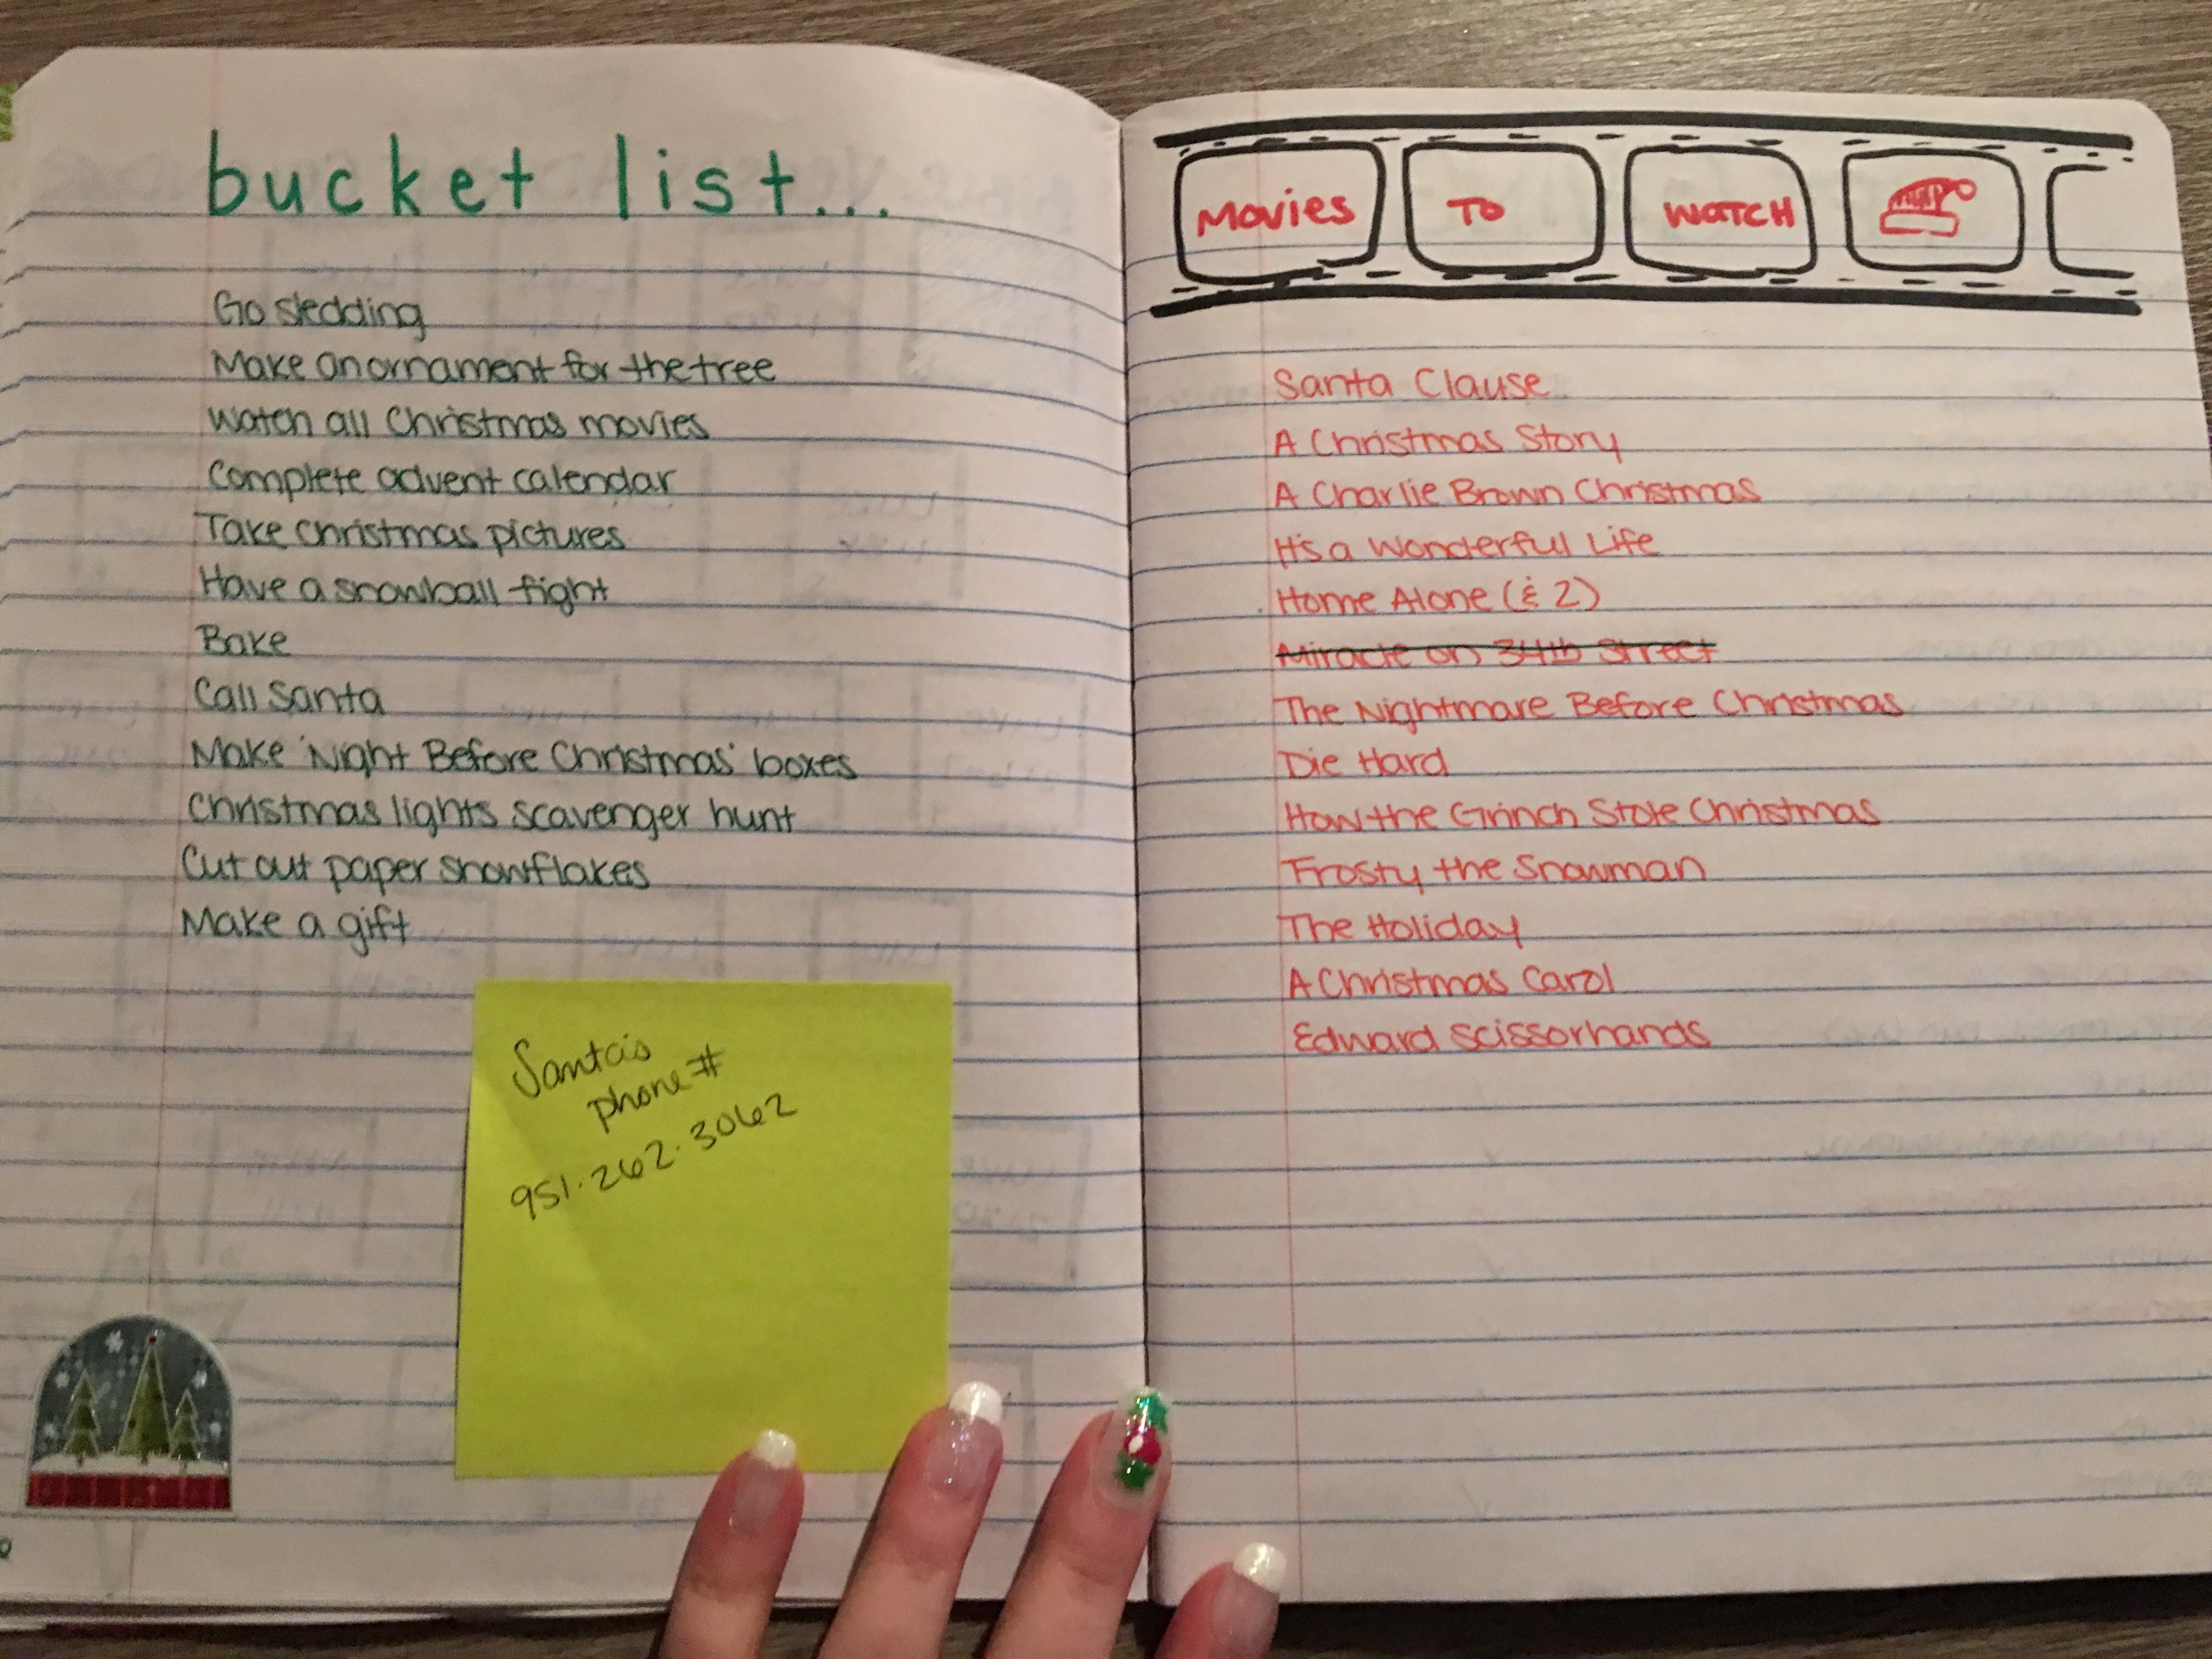 bucket list...
Go sledding
Make an ornament for the tree
Watch all Christmas movies
Complete advent calendar
Take Christmas pictures
Have a snowball fight
Bake
Call Santa
Make 'Night Before Christmas' boxes
Christmas lights scavenger hunt
Cut out paper snowflakes
Make a gift
Santa's
phone #
951.262.3062
Movies TO WATCH
Santa Clause
A Christmas Story
A Charlie Brown Christmas
It's a Wonderful Life
Home Alone (& 2)
Miracle on 34th Street
The Nightmare Before Christmas
Die Hard
How the Grinch Stole Christmas
Frosty the Snowman
The Holiday
A Christmas Carol
Edward Scissorhands